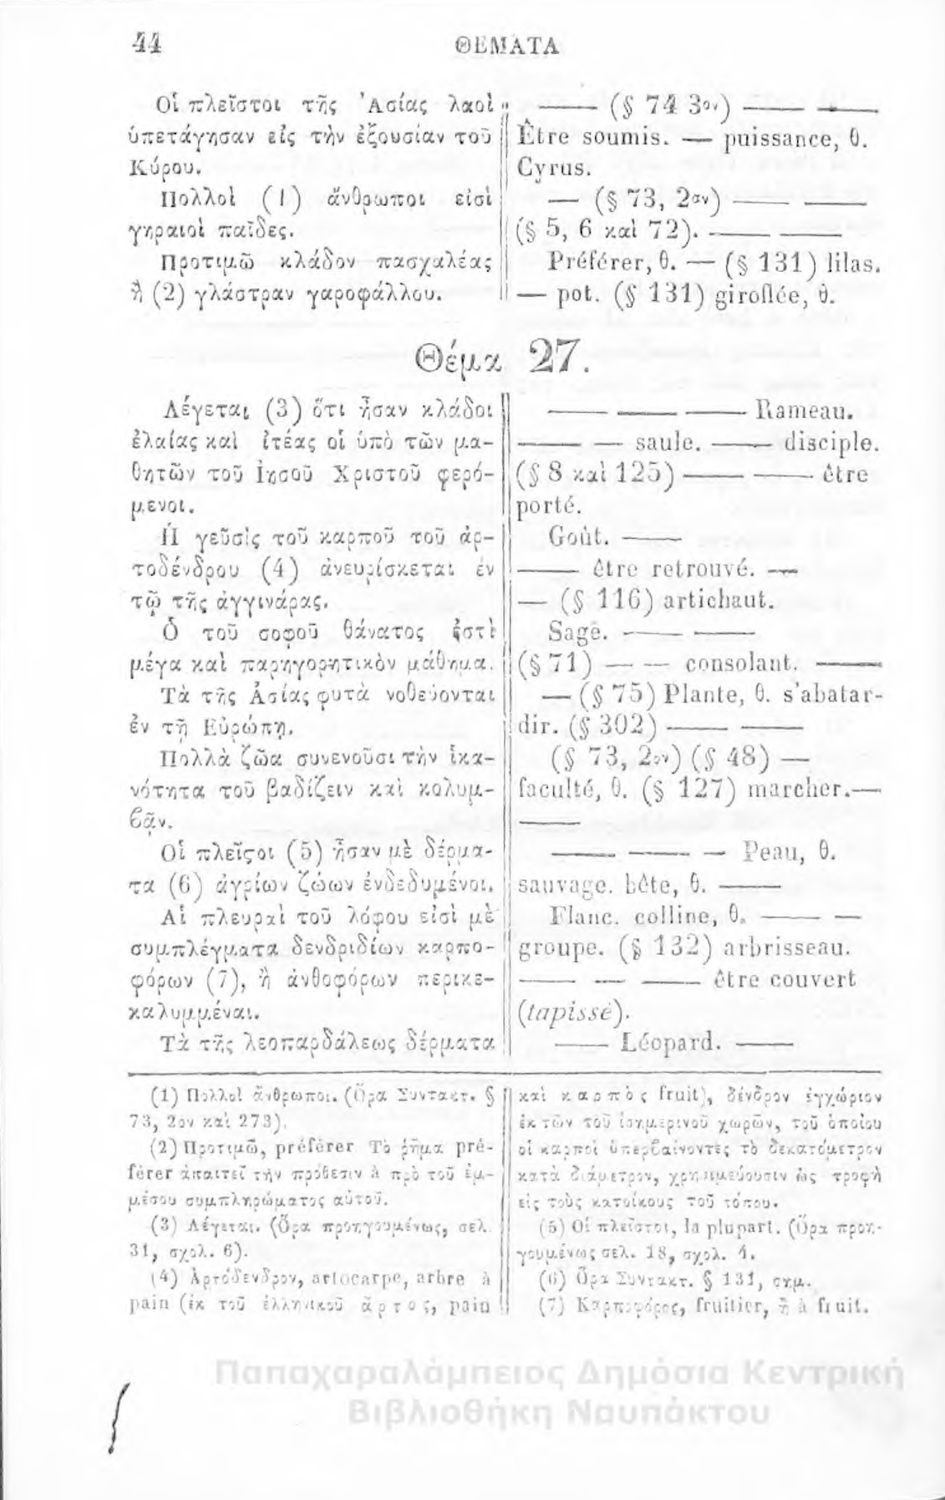 44 ΘΕΜΑΤΑ
Οἱ πλεῖστοι τῆς Ἀσίας λαοὶ
ὑπετάγησαν εἰς τὴν ἐξουσίαν τοῦ
Κύρου.
Πολλοὶ (1) ἄνθρωποι εἰσὶ
γηραιοὶ παῖδες.
Προτιμῶ κλάδον πασχαλέας
ἢ (2) γλάστραν γαροφάλλου.
» —— (§ 74 3ον) —— —.——
Être soumis. — puissance, θ.
Cyrus.
— (§ 73, 2ον) —— ——
(§ 5, 6 καὶ 72). —— ——
Préférer, θ. — (§ 131) lilas.
— pot. (§ 131) giroflée, θ.
Θέμα 27.
Λέγεται (3) ὅτι ἦσαν κλάδοι
ἐλαίας καὶ ἰτέας οἱ ὑπὸ τῶν μα-
θητῶν τοῦ Ἰησοῦ Χριστοῦ φερό-
μενοι.
Ἡ γεῦσις τοῦ καρποῦ τοῦ ἀρ-
τοδένδρου (4) ἀνευρίσκεται ἐν
τῷ τῆς ἀγγινάρας.
Ὁ τοῦ σοφοῦ θάνατος ἐστὶ
μέγα καὶ παρηγορητικὸν μάθημα.
Τὰ τῆς Ἀσίας φυτὰ νοθεύονται
ἐν τῇ Εὐρώπῃ.
Πολλὰ ζῶα συνενοῦσι τὴν ἱκα-
νότητα τοῦ βαδίζειν καὶ κολυμ-
βᾶν.
Οἱ πλεῖςοι (5) ἦσαν μὲ δέρμα-
τα (6) ἀγρίων ζώων ἐνδεδυμένοι.
Αἱ πλευραὶ τοῦ λόφου εἰσὶ μὲ
συμπλέγματα δενδριδίων καρπο-
φόρων (7), ἢ ἀνθοφόρων περικε-
καλυμμέναι.
Τὰ τῆς λεοπαρδάλεως δέρματα
—— —— —— Rameau.
—— — saule. —— disciple.
(§ 8 καὶ 125) —— —— être
porté.
Goût. ——
—— être retrouvé. —
— (§ 116) artichaut.
Sage. — ——
(§ 71) — — consolant. ——
— (§ 75) Plante, θ. s'abatar-
dir. (§ 302) —— ——
(§ 73, 2ον) (§ 48) —
faculté, θ. (§ 127) marcher.—
——
—— —— — Peau, θ.
sauvage. bête, θ. ——
Flanc. colline, θ. —— —
groupe. (§ 132) arbrisseau.
—— — —— être couvert
(tapissé).
—— Léopard. ——
(1) Πολλοὶ ἄνθρωποι. (Ὅρα Συντακτ. §
73, 2ον καὶ 273).
(2) Προτιμῶ, préférer Τὸ ῥῆμα pré-
férer ἀπαιτεῖ τὴν πρόθεσιν à πρὸ τοῦ ἐμ-
μέσου συμπληρώματος αὐτοῦ.
(3) Λέγεται. (Ὅρα προηγουμένως, σελ.
31, σχολ. 6).
(4) Ἀρτόδενδρον, artocarpe, arbre à
pain (ἐκ τοῦ ἑλληνικοῦ ἄρτος, pain
καὶ καρπὸς fruit), δένδρον ἐγχώριον
ἐκ τῶν τοῦ ἰσημερινοῦ χωρῶν, τοῦ ὁποίου
οἱ καρποὶ ὑπερβαίνοντες τὸ δεκατόμετρον
κατὰ διάμετρον, χρησιμεύουσιν ὡς τροφὴ
εἰς τοὺς κατοίκους τοῦ τόπου.
(5) Οἱ πλεῖστοι, la plupart. (Ὅρα προη-
γουμένως σελ. 18, σχολ. 4.
(6) Ὅρα Συντακτ. § 131, σημ.
(7) Καρποφόρος, fruitier, ἢ à fruit.
Παπαχαραλάμπειος Δημόσια Κεντρική
Βιβλιοθήκη Ναυπάκτου